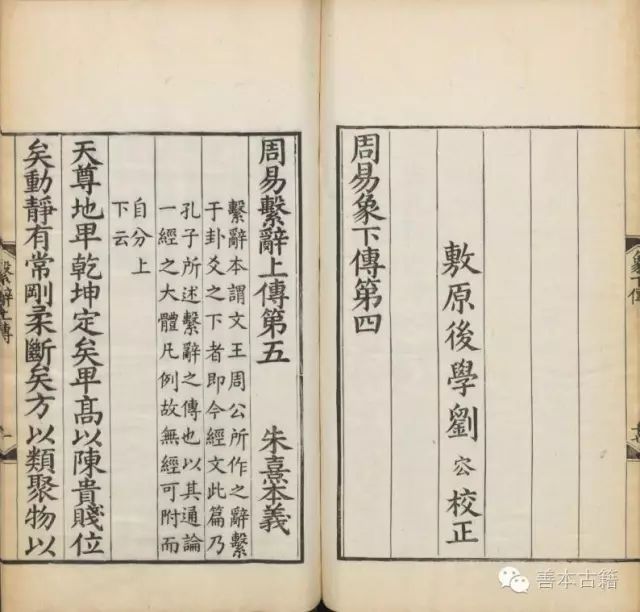 象下傳
敷原後學劉㝐校正
周易象下傳第四
周易繫辭上傳第五 朱熹本義
繫辭本謂文王周公所作之辭繫
于卦爻之下者即今經文此篇乃
孔子所述繫辭之傳也以其通論
一經之大體凡例故無經可附而
自分上
下云
天尊地卑乾坤定矣卑髙以陳貴賤位
矣動靜有常剛柔斷矣方以類聚物以
繫辭上傳
一
善本古籍